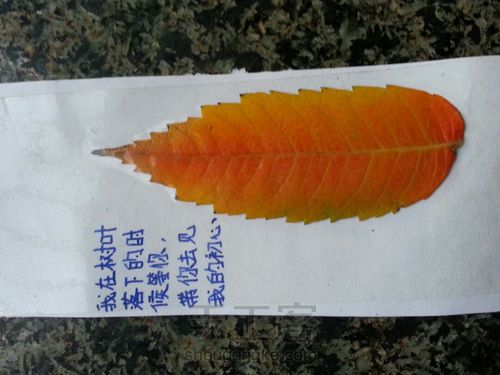 我在树叶
落下的时
候等你，
带你去见
我的初心
手工客
shougongke.com